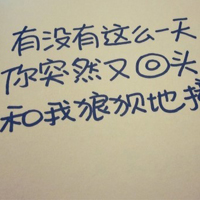 有没有这么一天
你突然又回头
和我狼狈地